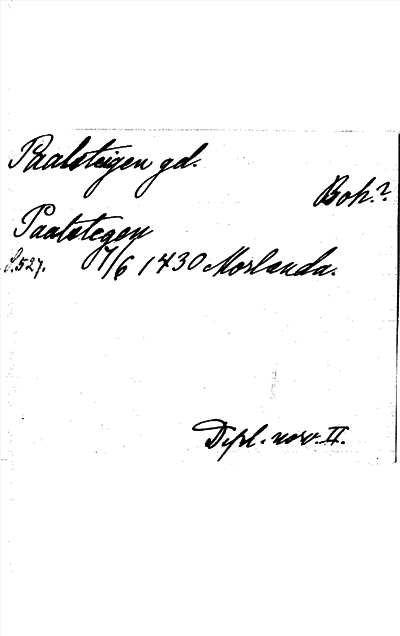 Paalsteigen gd.
Boh.?
Paalstegen
S.527. 7/6 1430 Morlanda.
Dipl. norv. II.